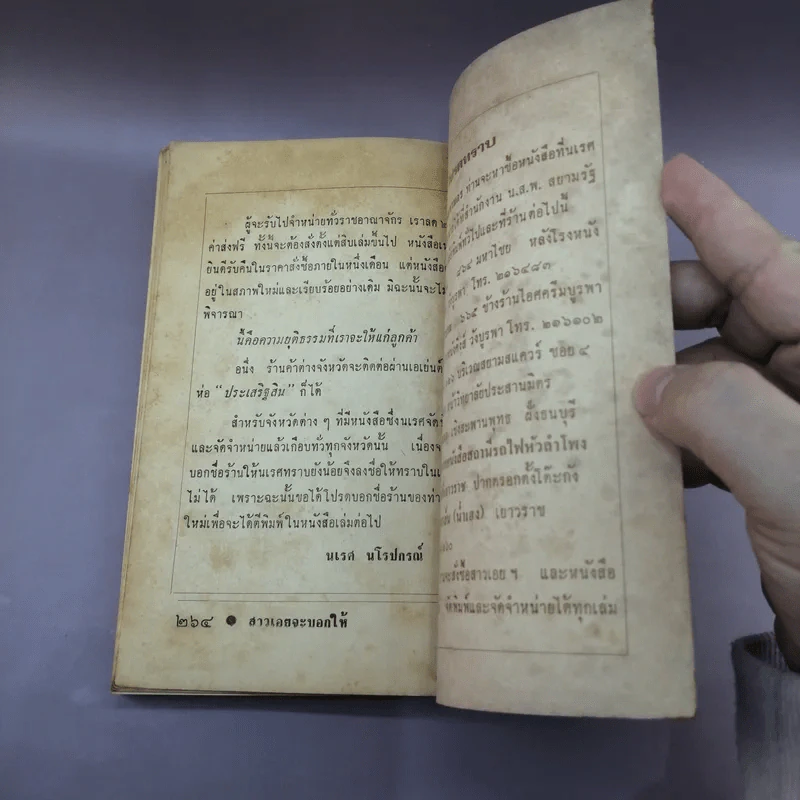 ผู้จะรับไปจำหน่ายทั่วราชอาณาจักร เราลด ๒
ค่าส่งฟรี ทั้งนี้จะต้องสั่งตั้งแต่สิบเล่มขึ้นไป หนังสือเร
ยินดีรับคืนในราคาสั่งซื้อภายในหนึ่งเดือน แต่หนังสือ
อยู่ในสภาพใหม่และเรียบร้อยอย่างเดิม มิฉะนั้นจะไม
พิจารณา
นี่คือความยุติธรรมที่เราจะให้แก่ลูกค้า
อนึ่ง ร้านค้าต่างจังหวัดจะติดต่อผ่านเอเย่นต์
ห่อ “ประเสริฐสิน” ก็ได้
สำหรับจังหวัดต่าง ๆ ที่มีหนังสือซึ่งนเรศจัด
และจัดจำหน่ายแล้วเกือบทั่วทุกจังหวัดนั้น เนื่องจ
บอกชื่อร้านให้นเรศทราบยังน้อยจึงลงชื่อให้ทราบใน
ไม่ได้ เพราะฉะนั้นขอได้โปรดบอกชื่อร้านของท่า
ใหม่เพื่อจะได้ตีพิมพ์ในหนังสือเล่มต่อไป
นเรศ นโรปกรณ์
๒๖๔ ● สาวเอยจะบอกให้
ท่านจะหาซื้อหนังสือที่นเรศ
ได้ที่สำนักงาน น.ส.พ. สยามรัฐ
ทั่วไปและที่ร้านต่อไปนี้
๔๖๔ มหาไชย หลังโรงหนัง
บูรพา โทร. ๒๑๖๔๘๓
๖๖๕ ข้างร้านไอศครีมบูรพา
วังบูรพา โทร. ๒๑๖๑๐๒
บริเวณสยามสแควร์ ซอย ๔
วิทยาลัยประสานมิตร
เชิงสะพานพุทธ ฝั่งธนบุรี
หนังสือสถานีรถไฟหัวลำโพง
ปากตรอกตั้งโต๊ะกัง
(น่ำเฮง) เยาวราช
สั่งซื้อสาวเอย ฯ และหนังสือ
จัดพิมพ์และจัดจำหน่ายได้ทุกเล่ม